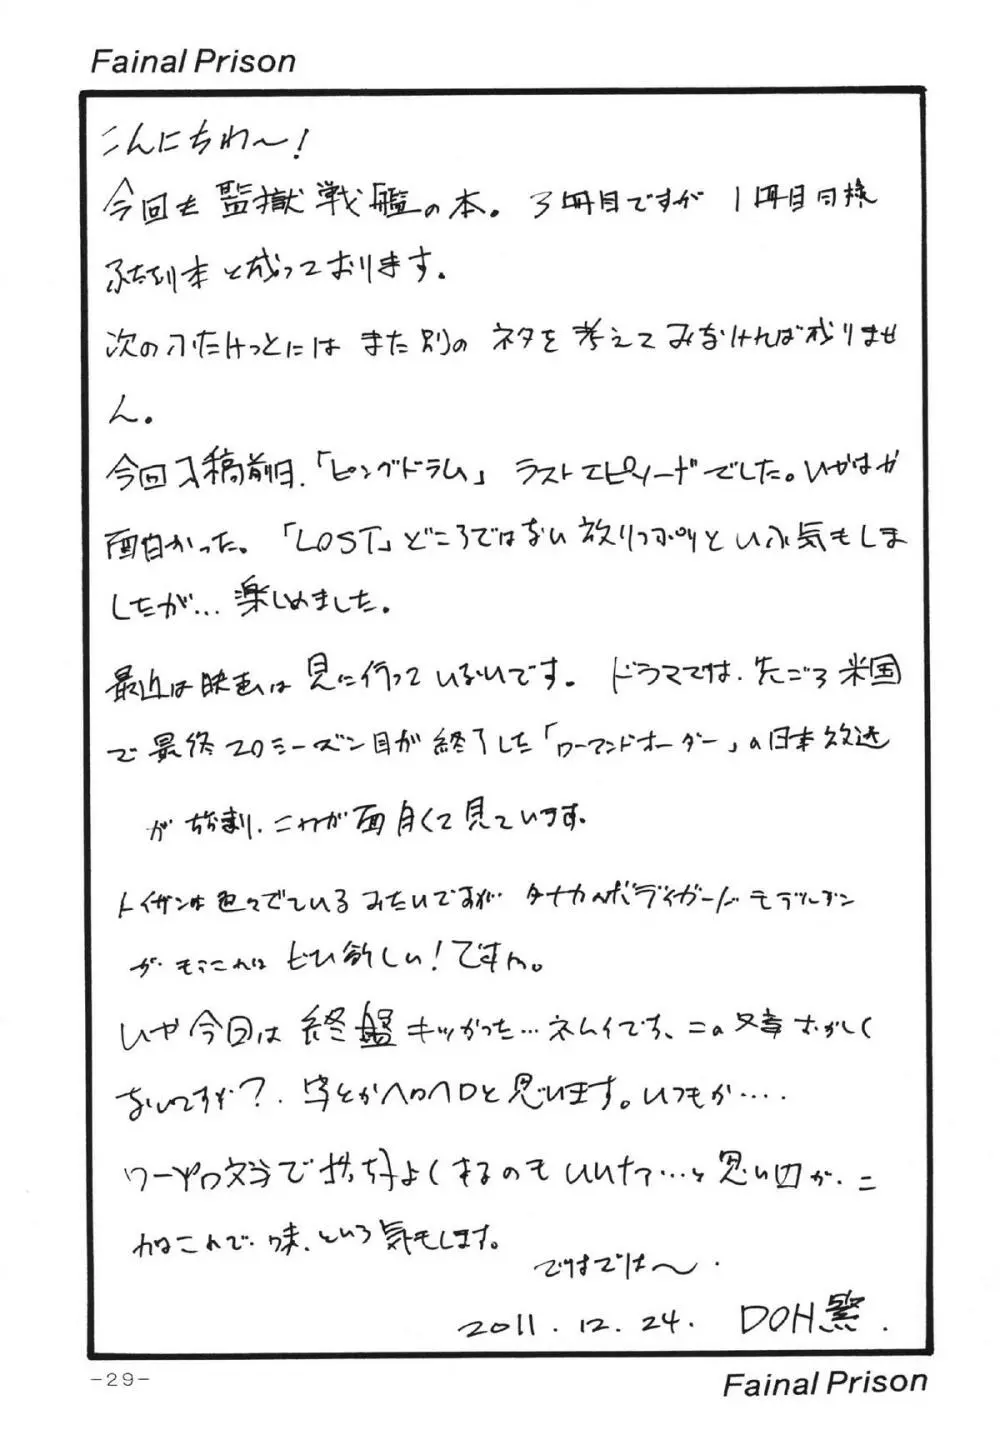 Fainal Prison
こんにちわ～！
今回も監獄戦艦の本。3冊目ですが1冊目同様
ふたなり本と成っております。
次のふたけっとにはまた別のネタを考えてみなければ成りませ
ん。
今回入稿前日、「ピングドラム」ラストエピソードでした。いやはや
面白かった。「LOST」どころではない放りっぷりという気もしま
したが…楽しめました。
最近は映画は見に行っていないです。ドラマでは、先ごろ米国
で最終20シーズン目が終了した「ローアンドオーダー」の日本放送
が始まり、これが面白くて見ています。
トイガンは色々でているみたいですが…タナカのボディガードモデルガン
が、もうこれは ぜひ欲しい！ですね。
いや今回は終盤キツかった…ネムイです、この文章おかしく
ないですか？、字とかヘロヘロと思います。いつもか‥‥
ワープロ文字で格好よくするのもいいなァ…と思い㆕が、こ
れはこれで味、という気もします。
ではでは～．
2011．12．24．DOH繁．
-29-
Fainal Prison